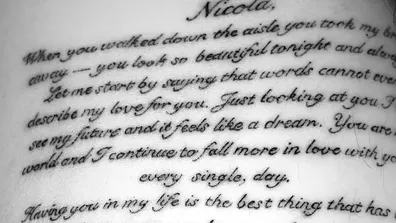 Nicola,
When you walked down the aisle you took my
away — you look so beautiful tonight and
Let me start by saying that words cannot
describe my love for you. Just looking at you I
see my future and it feels like a dream. You are
world and I continue to fall more in love with
every single, day.
Having you in my life is the best thing that has